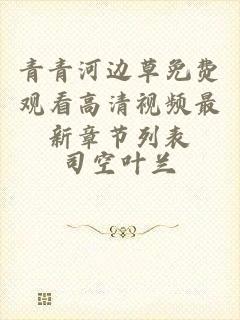 青青河边草免费
观看高清视频最
新章节列表
司空叶兰